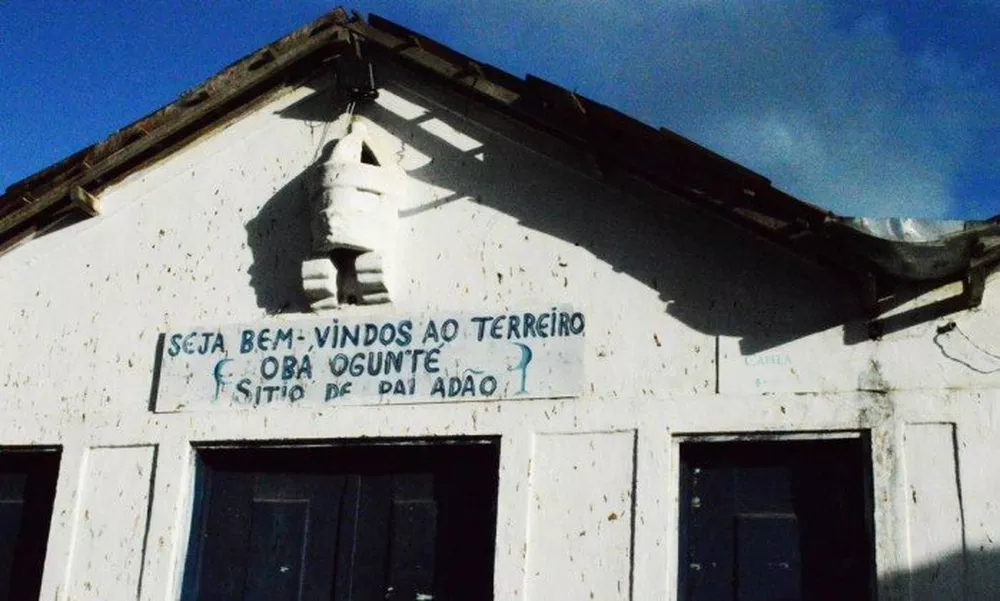 SEJA BEM-VINDOS AO TERREIRO
OBA OGUNTE
SITIO DE PAI ADÃO
CAPELA